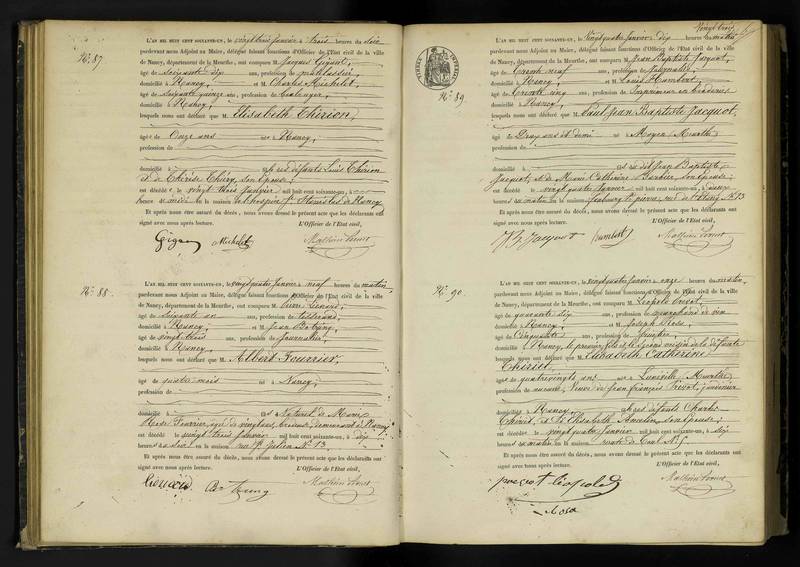 N° 87
L'AN MIL HUIT CENT SOIXANTE-UN, le vingt trois Janvier à trois heures du soir
pardevant nous Adjoint au Maire, délégué faisant fonctions d'Officier de l'Etat civil de la ville
de Nancy, département de la Meurthe, ont comparu M. Jacques
âgé de soixante dix ans, profession de matelassier
domicilié à Nancy, et M. Charles Michelet,
âgé de soixante quinze ans, profession de
domicilié à Nancy
lesquels nous ont déclaré que M. Elisabeth Thirion,
âgée de Onze ans née à Nancy
profession de
domicilié à fille des défunts Louis Thirion
et de Thérèse Thiéry, son épouse,
est décédée, le vingt trois Janvier mil huit cent soixante-un, à une
heure de midi en la maison de l'hospice St Stanislas de Nancy
Et après nous être assuré du décès, nous avons dressé le présent acte que les déclarants ont
signé avec nous après lecture. L'Officier de l'Etat civil,
Michelet
N° 88.
L'AN MIL HUIT CENT SOIXANTE-UN, le vingt quatre Janvier à neuf heures du matin
pardevant nous Adjoint au Maire, délégué faisant fonctions d'Officier de l'Etat civil de la ville
de Nancy, département de la Meurthe, ont comparu M. Pierre Liénard,
âgé de soixante un ans, profession de tisserand
domicilié à Nancy, et M. Jean
âgé de vingt trois ans, profession de Journalier,
domicilié à Nancy
lesquels nous ont déclaré que M. Albert Fourrier,
âgé de quatre mois né à Nancy,
profession de
domicilié à fils naturel de Marie
Rose Fourrier, âgée de vingt ans, brodeuse, demeurant à Nancy
est décédé le vingt trois Janvier mil huit cent soixante-un, à dix
heures du soir en la maison rue St Julien N° 13.
Et après nous être assuré du décès, nous avons dressé le présent acte que les déclarants ont
signé avec nous après lecture. L'Officier de l'Etat civil,
Vingt trois
N° 89.
L'AN MIL HUIT CENT SOIXANTE-UN, le vingt quatre Janvier à dix heures du matin
pardevant nous Adjoint au Maire, délégué faisant fonctions d'Officier de l'Etat civil de la ville
de Nancy, département de la Meurthe, ont comparu M. Jean Baptiste Jacquot,
âgé de trente neuf ans, profession de
domicilié à Nancy, et M. Louis Humbert,
âgé de trente cinq ans, profession de Imprimeur en broderies
domicilié à Nancy,
lesquels nous ont déclaré que M. Paul Jean Baptiste Jacquot,
âgé de Deux ans et demi né à Moyen, Meurthe
profession de
domicilié à fils dudit Jean Baptiste
Jacquot, et de Marie Catherine Barbier, son épouse,
est décédé le vingt quatre Janvier mil huit cent soixante-un, à
heures du matin en la maison faubourg St pierre, rue de l'étang N° 13
Et après nous être assuré du décès, nous avons dressé le présent acte que les déclarants ont
signé avec nous après lecture. L'Officier de l'Etat civil,
Jacquot Humbert
N° 90.
L'AN MIL HUIT CENT SOIXANTE-UN, le vingt quatre Janvier à onze heures du matin,
pardevant nous Adjoint au Maire, délégué faisant fonctions d'Officier de l'Etat civil de la ville
de Nancy, département de la Meurthe, ont comparu M. Léopold
âgé de quarante six ans, profession de marchand de vin
domicilié à Nancy, et M. Joseph
âgé de Cinquante ans, profession de
domicilié à Nancy, le premier fils et le second voisin de la défunte
lesquels nous ont déclaré que M. Elisabeth Catherine
Thiriet,
âgée de quatre vingts ans née à Lunéville, Meurthe
profession de aucune, Veuve de Jean François
domicilié à Nancy, fille des défunts Charles
Thiriet, et de Elisabeth son épouse,
est décédée le vingt quatre Janvier mil huit cent soixante-un, à six
heures du matin en la maison route de Toul N° 5.
Et après nous être assuré du décès, nous avons dressé le présent acte que les déclarants ont
signé avec nous après lecture. L'Officier de l'Etat civil,